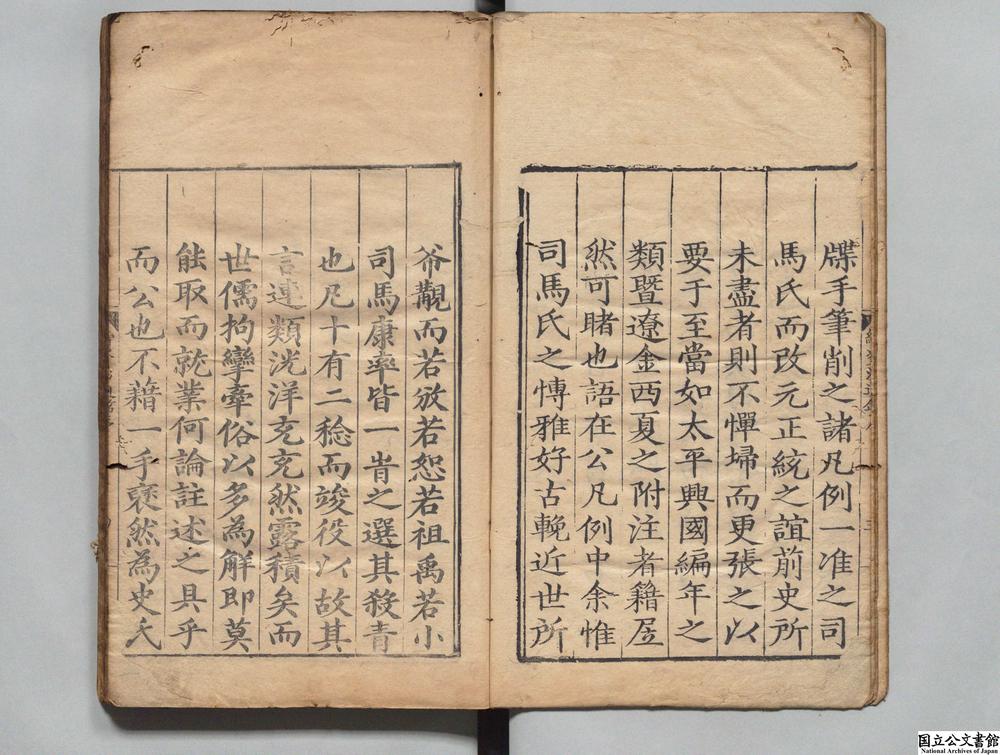 牒手筆削之諸凡例一准之司
馬氏而改元正統之誼前史所
未盡者則不憚埽而更張之以
要于至當如太平興國編年之
類暨遼金西夏之附注者籍居
然可睹也語在公凡例中余惟
司馬氏之愽雅好古輓近世所
爷觀而若攽若恕若祖禹若小
司馬康率皆一旹之選其殺青
也凡十有二稔而竣役以故其
言連類洸洋充充然露積矣而
世儒拘攣牽俗以多為解即莫
能取而就業何論註述之具乎
而公也不藉一手裒然為史氏
国立公文書館
National Archives of Japan